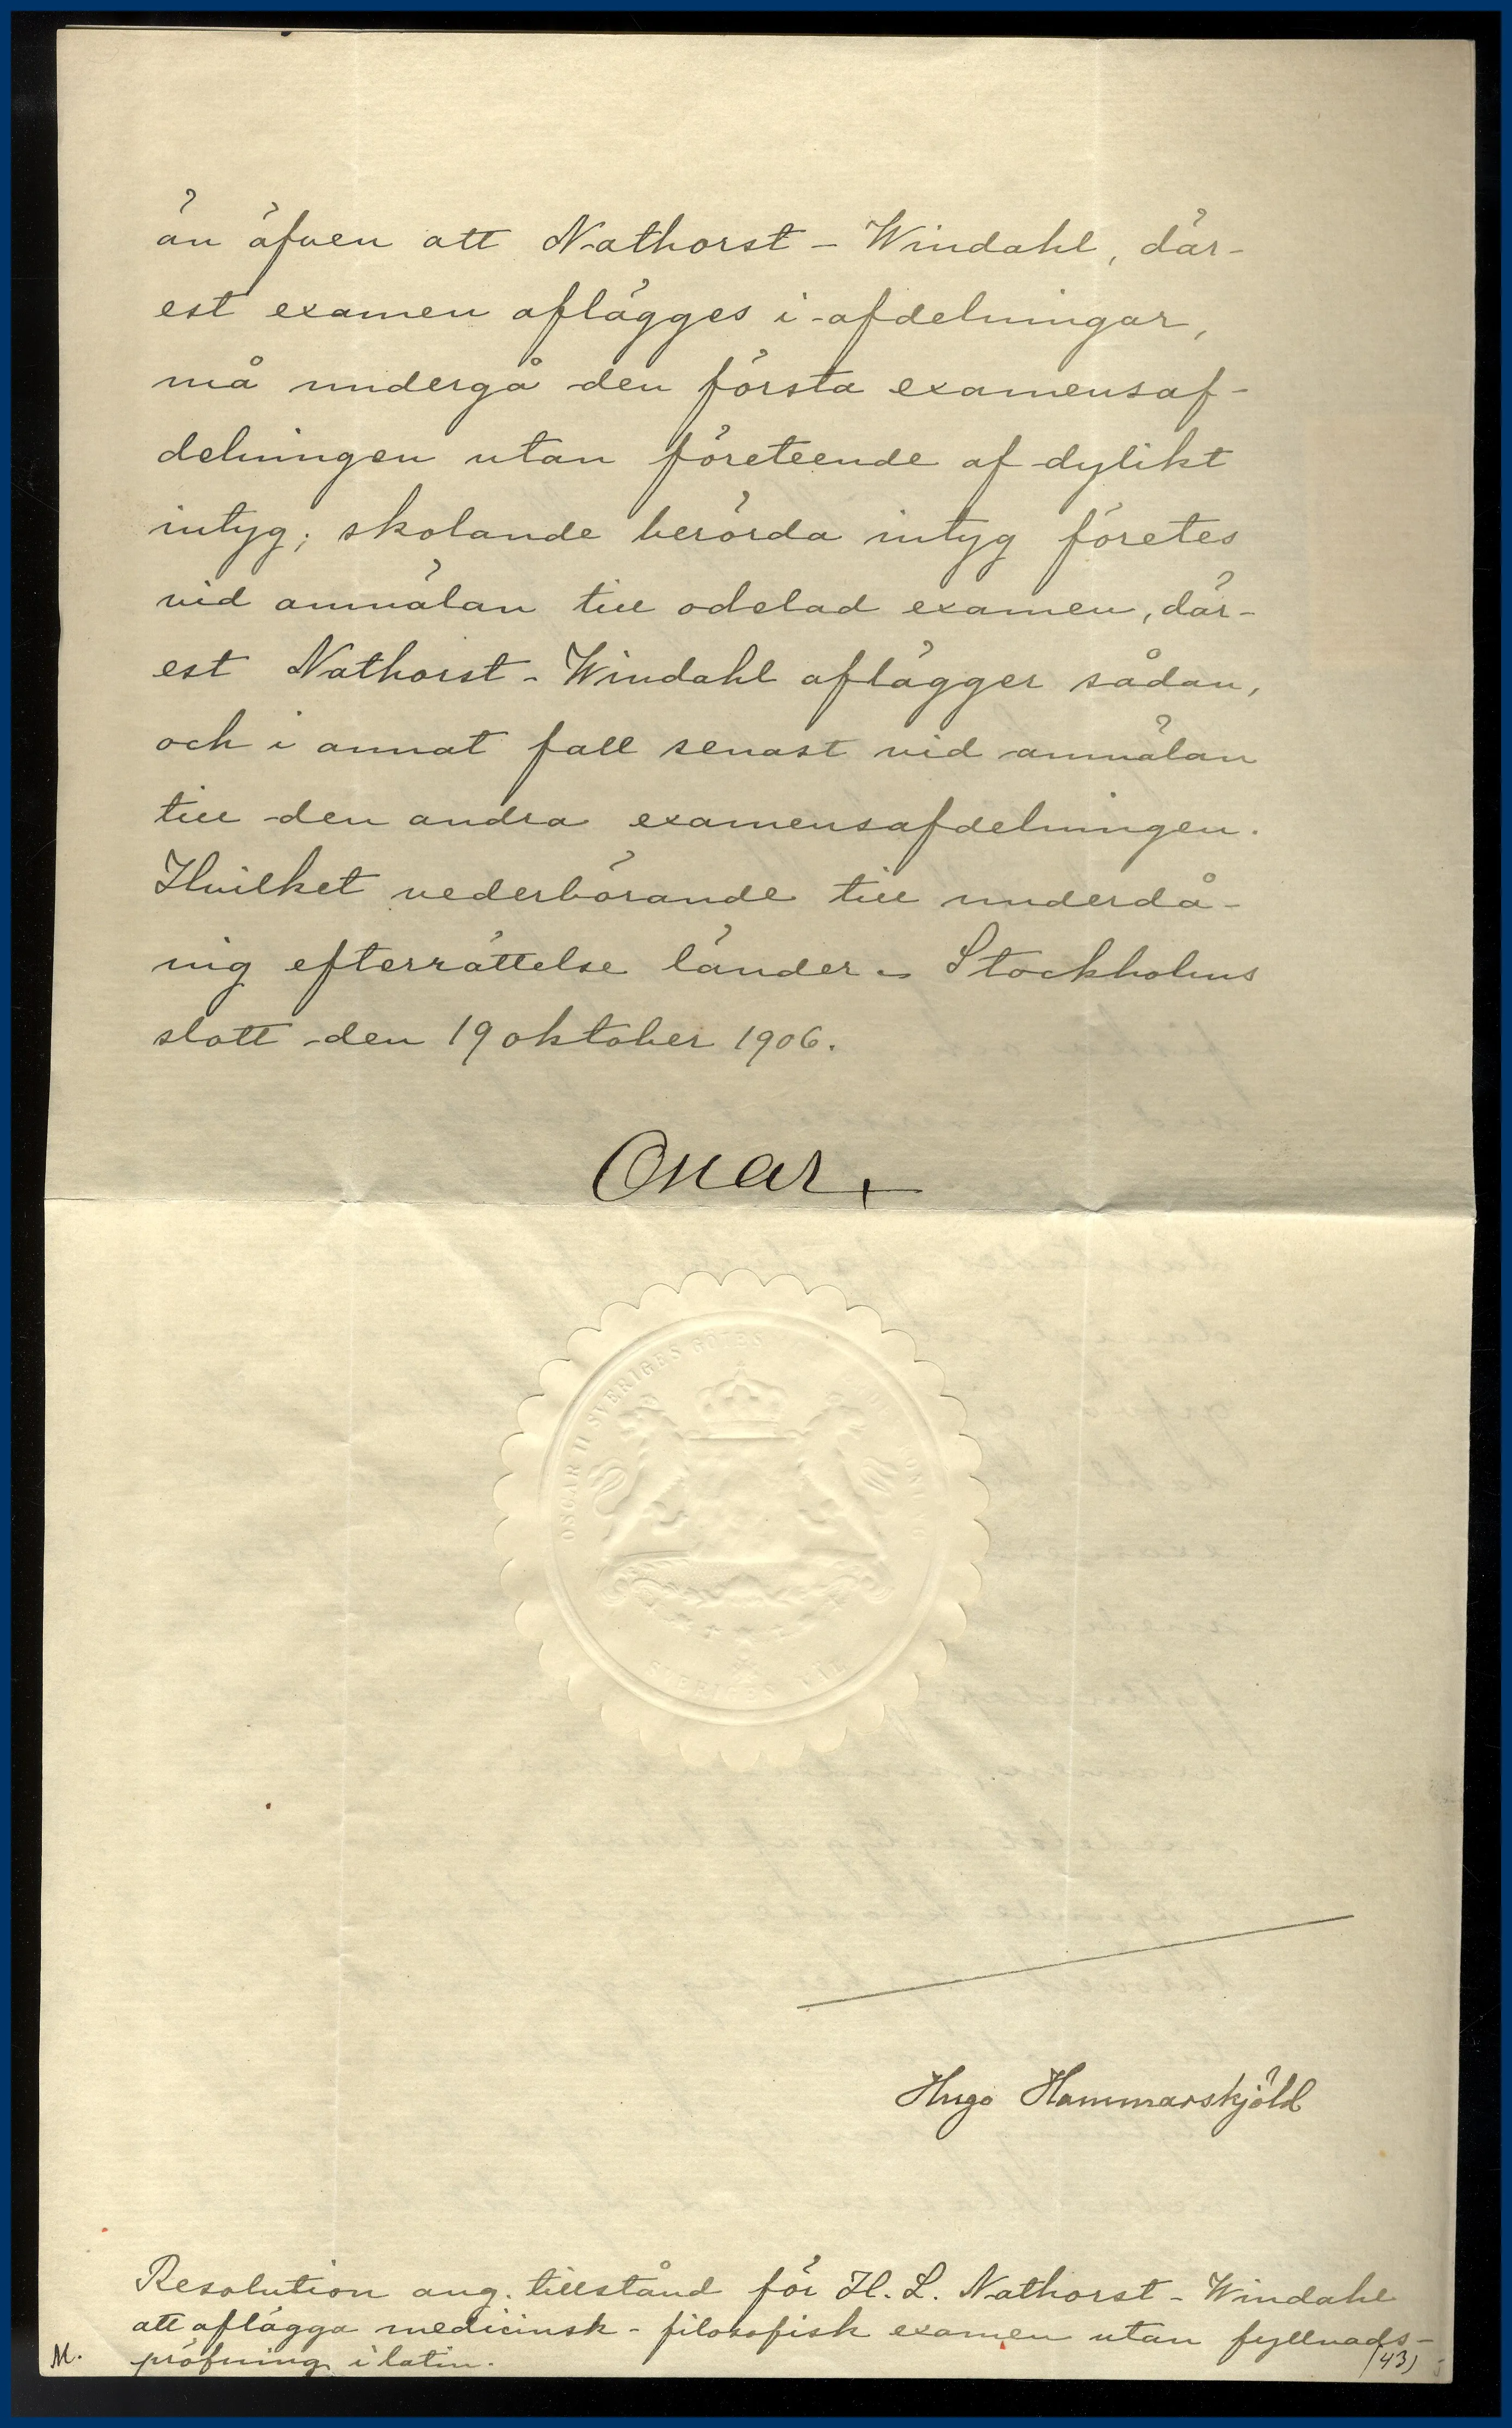 än äfven att Nathorst-Windahl, där-
est examen aflägges i afdelningar,
må undergå den första examensaf-
delningen utan företeende af dylikt
intyg; skolande berörda intyg företes
vid anmälan till odelad examen, där-
est Nathorst-Windahl aflägger sådan,
och i annat fall senast vid anmälan
till den andra examensafdelningen.
Hvilket vederbörande till underdå-
nig efterrättelse länder. Stockholms
slott den 19 oktober 1906.
Oscar
OSCAR II SVERIGES GÖTES
SVERIGES VÄL
Hugo Hammarskjöld
Resolution ang. tillstånd för H. L. Nathorst-Windahl
att aflägga medicinsk-filosofisk examen utan fyllnads-
M. pröfning i latin. (43)